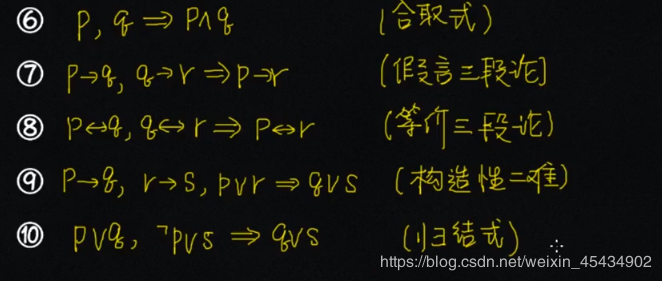 ⑥ p, q ⇒ p∧q (合取式)
⑦ p→q, q→r ⇒ p→r (假言三段论)
⑧ p↔q, q↔r ⇒ p↔r (等价三段论)
⑨ p→q, r→s, p∨r ⇒ q∨s (构造性二难)
⑩ p∨q, ¬p∨s ⇒ q∨s (归结式)
https://blog.csdn.net/weixin_45434902